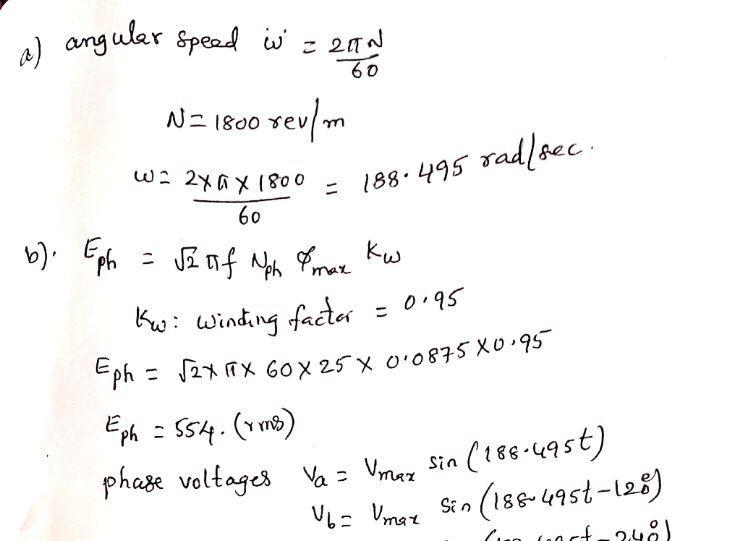 a) angular speed 'ω' = 2πN/60
N = 1800 rev/m
ω = 2×π×1800/60 = 188.495 rad/sec.
b). Eph = √2 πf Nph φmax Kw
Kw: winding factor = 0.95
Eph = √2×π×60×25×0.0875×0.95
Eph = 554. (rms)
phase voltages Va = Vmax sin (188.495t)
Vb = Vmax Sin (188.495t-120°)